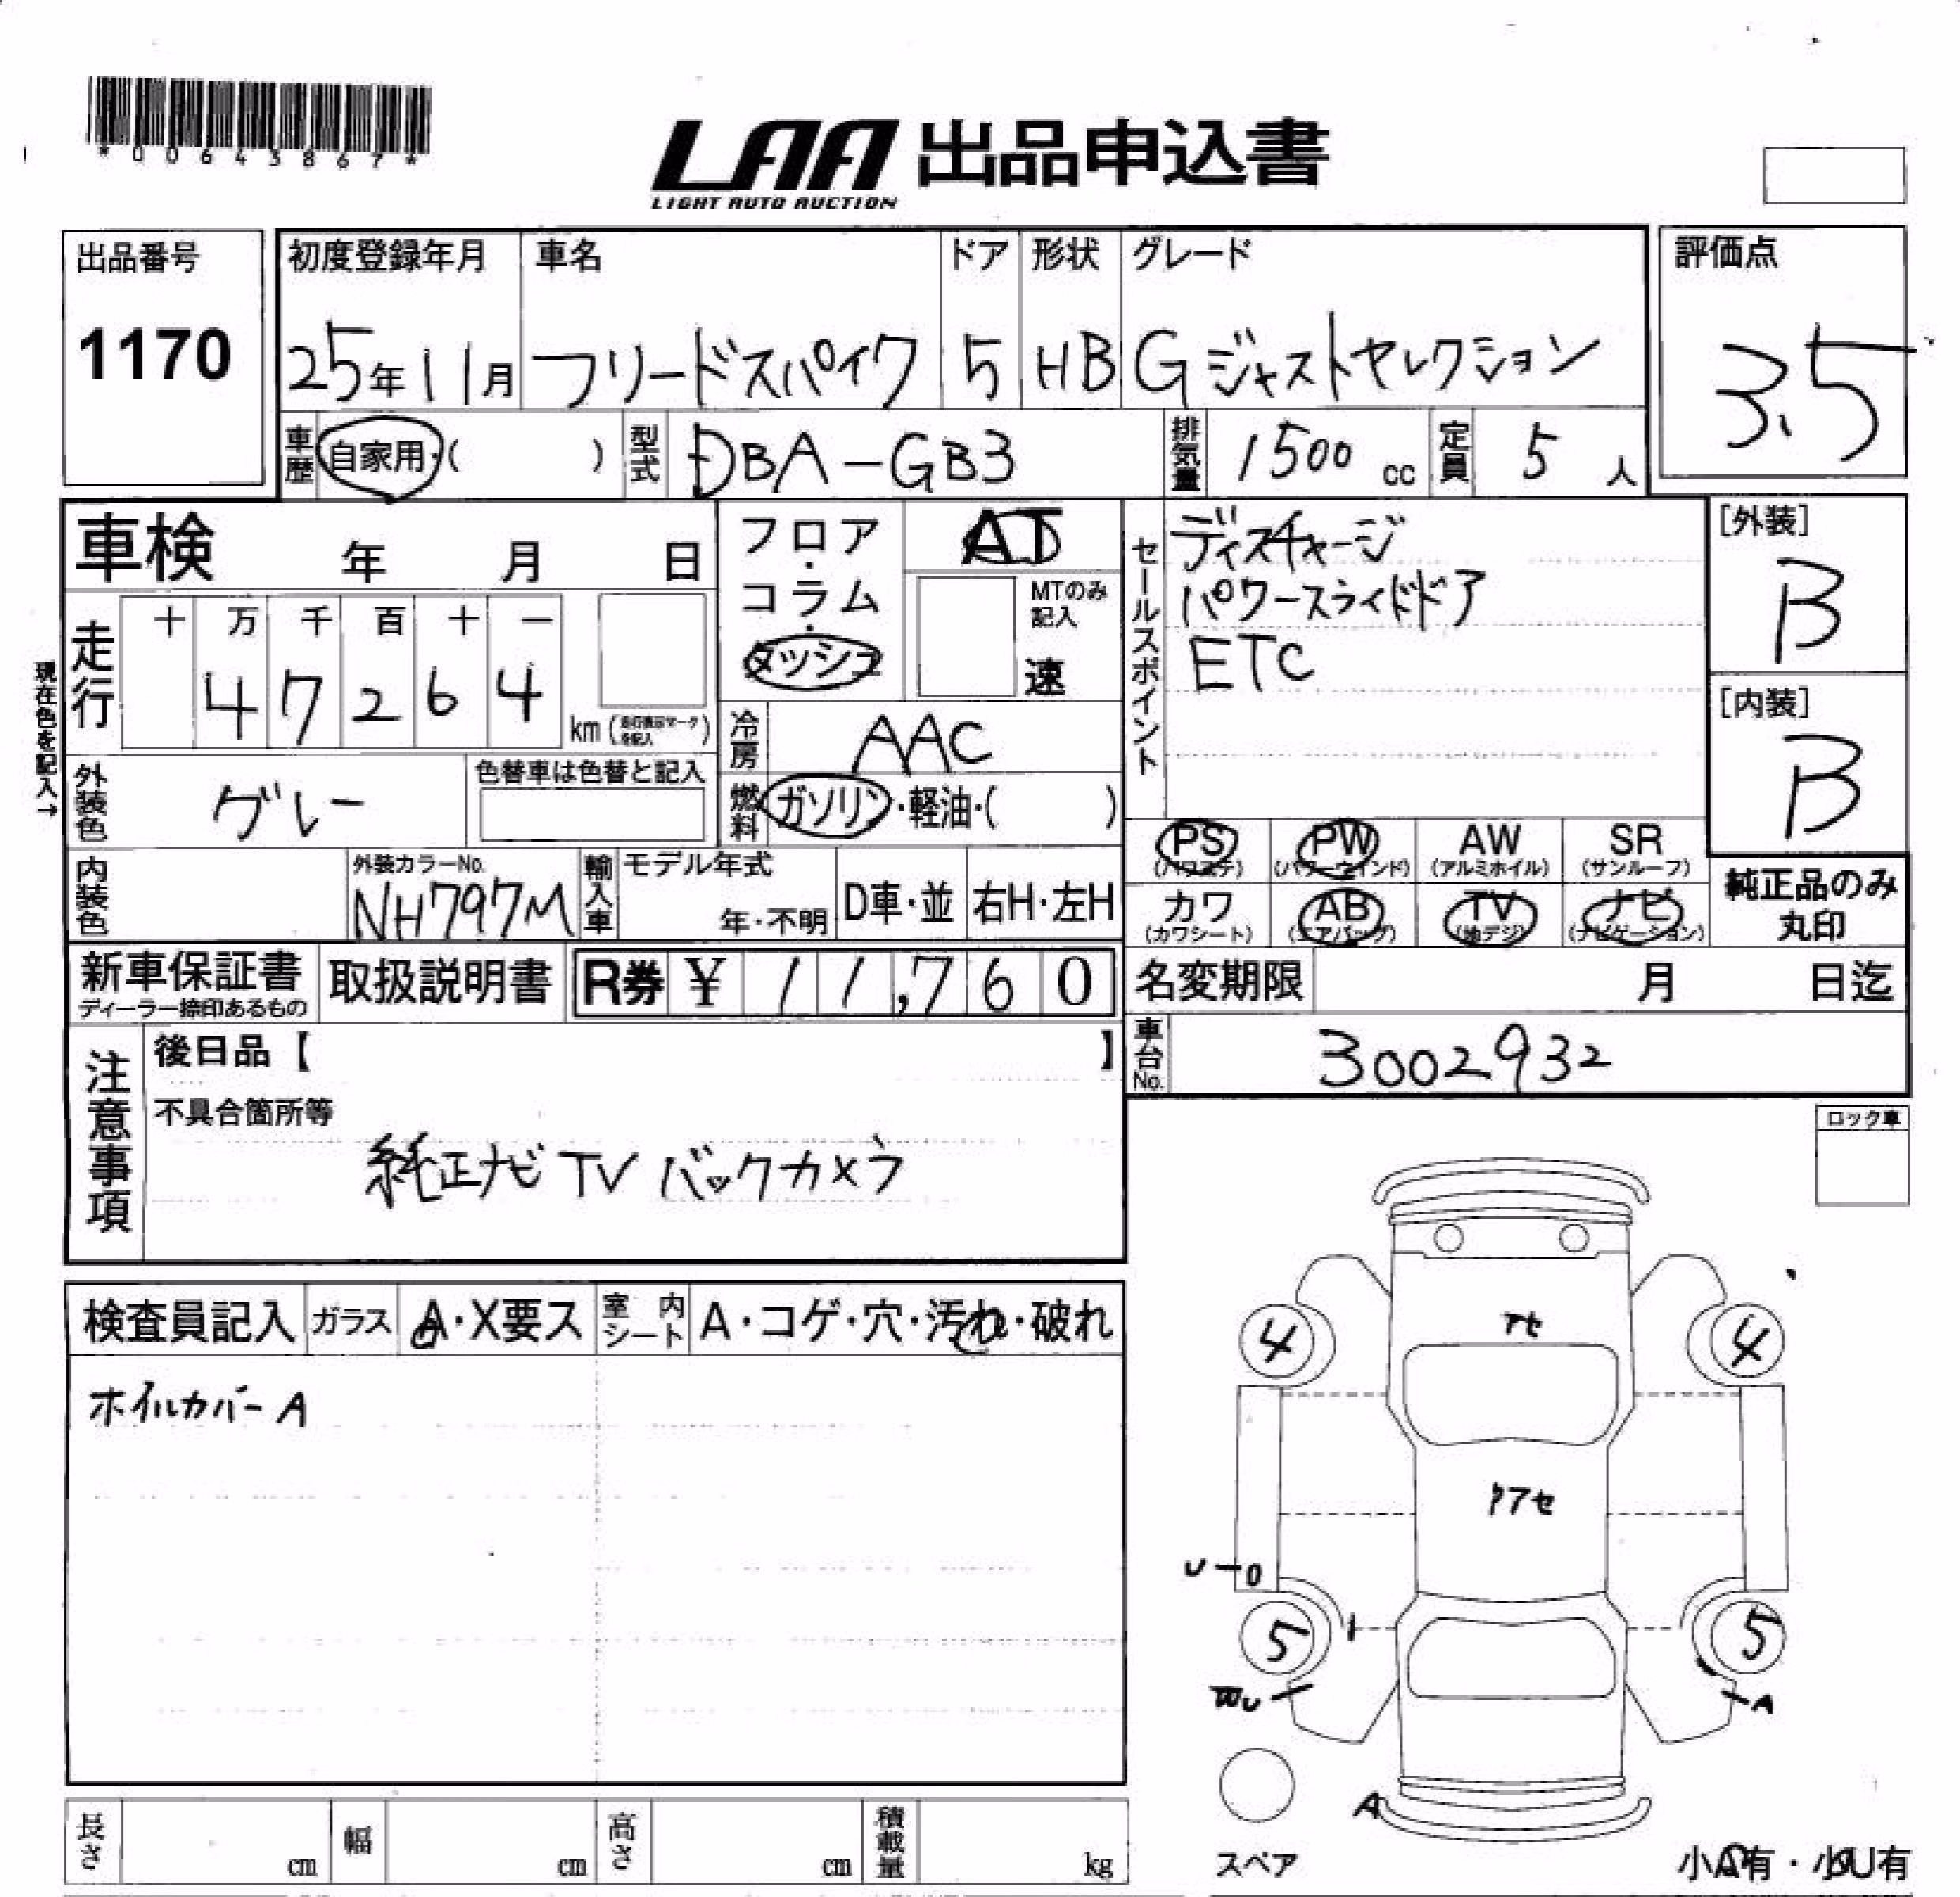 *00643867*
LAA 出品申込書
LIGHT AUTO AUCTION
出品番号
1170
初度登録年月
25年11月
車名
フリードスパイク
ドア
5
形状
HB
グレード
Gジャストセレクション
評価点
3.5
車歴
自家用・( )
型式
DBA-GB3
排気量
1500 cc
定員
5 人
車検 年 月 日
フロア・
コラム・
ダッシュ
AT
MTのみ
記入
速
セールスポイント
ディスチャージ
パワースライドドア
ETC
[外装]
B
[内装]
B
現在色を記入→
走行
十 万 千 百 十 一
4 7 2 6 4
km
冷房
AAC
外装色
グレー
色替車は色替と記入
燃料
ガソリン・軽油・( )
PS
(パワステ)
PW
(パワーウィンド)
AW
(アルミホイル)
SR
(サンルーフ)
内装色
外装カラーNo.
NH797M
輸入車
モデル年式
年・不明
D車・並
右H・左H
カワ
(カワシート)
AB
(エアバッグ)
TV
(地デジ)
ナビ
(ナビゲーション)
純正品のみ
丸印
新車保証書
ディーラー捺印あるもの
取扱説明書
R券 ¥ 11,760
名変期限 月 日迄
車台No.
3002932
注意事項
後日品【 】
不具合箇所等
純正ナビ TV バックカメラ
ロック車
検査員記入
ガラス
A・X要ス
室内シート
A・コゲ・穴・汚れ・破れ
ホイルカバー A
アセ
4
4
クアセ
U
5
5
A
A
スペア
小A有・小U有
長さ cm
幅 cm
高さ cm
積載量 kg